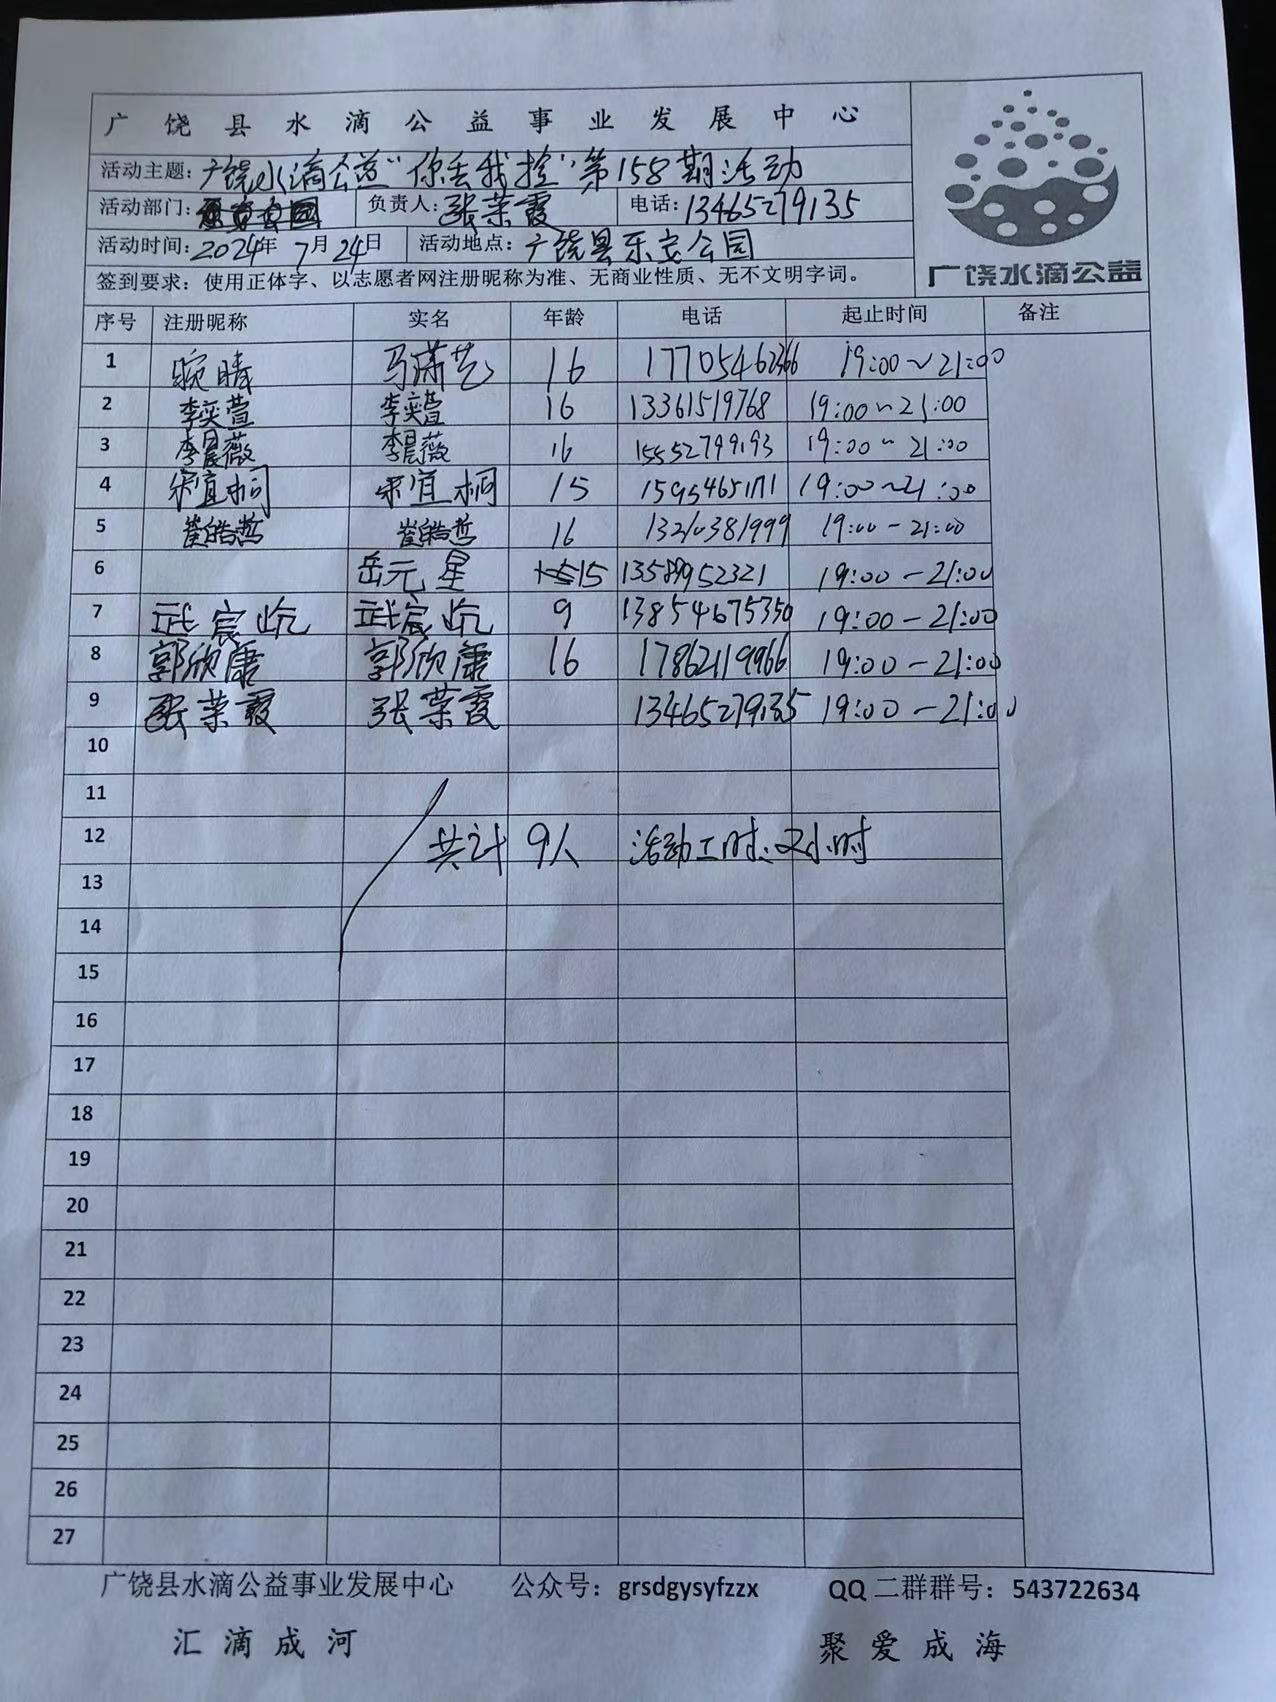 广饶县水滴公益事业发展中心
活动主题：广饶水滴公益“你丢我捡”第158期活动
活动部门： 负责人：张荣霞 电话：13465279135
活动时间：2024年7月24日 活动地点：广饶县乐安公园
签到要求：使用正体字、以志愿者网注册昵称为准、无商业性质、无不文明字词。
广饶水滴公益
序号 注册昵称 实名 年龄 电话 起止时间 备注
1 晴 马潇艺 16 19:00～21:00
2 李奕萱 李奕萱 16 13361519768 19:00～21:00
3 李晨薇 李晨薇 16 15552799193 19:00～21:00
4 宋宜桐 宋宜桐 15 19:00～21:00
5 崔皓哲 崔皓哲 16 13210381999 19:00－21:00
6 岳元星 15 13589952321 19:00－21:00
7 武宸屹 武宸屹 9 13854675350 19:00－21:00
8 郭欣康 郭欣康 16 17862119966 19:00－21:00
9 张荣霞 张荣霞 13465279135 19:00－21:00
10
11
12 共计 9人 活动工时：2小时
13
14
15
16
17
18
19
20
21
22
23
24
25
26
27
广饶县水滴公益事业发展中心 公众号：grsdgysyfzzx QQ二群群号：543722634
汇滴成河 聚爱成海